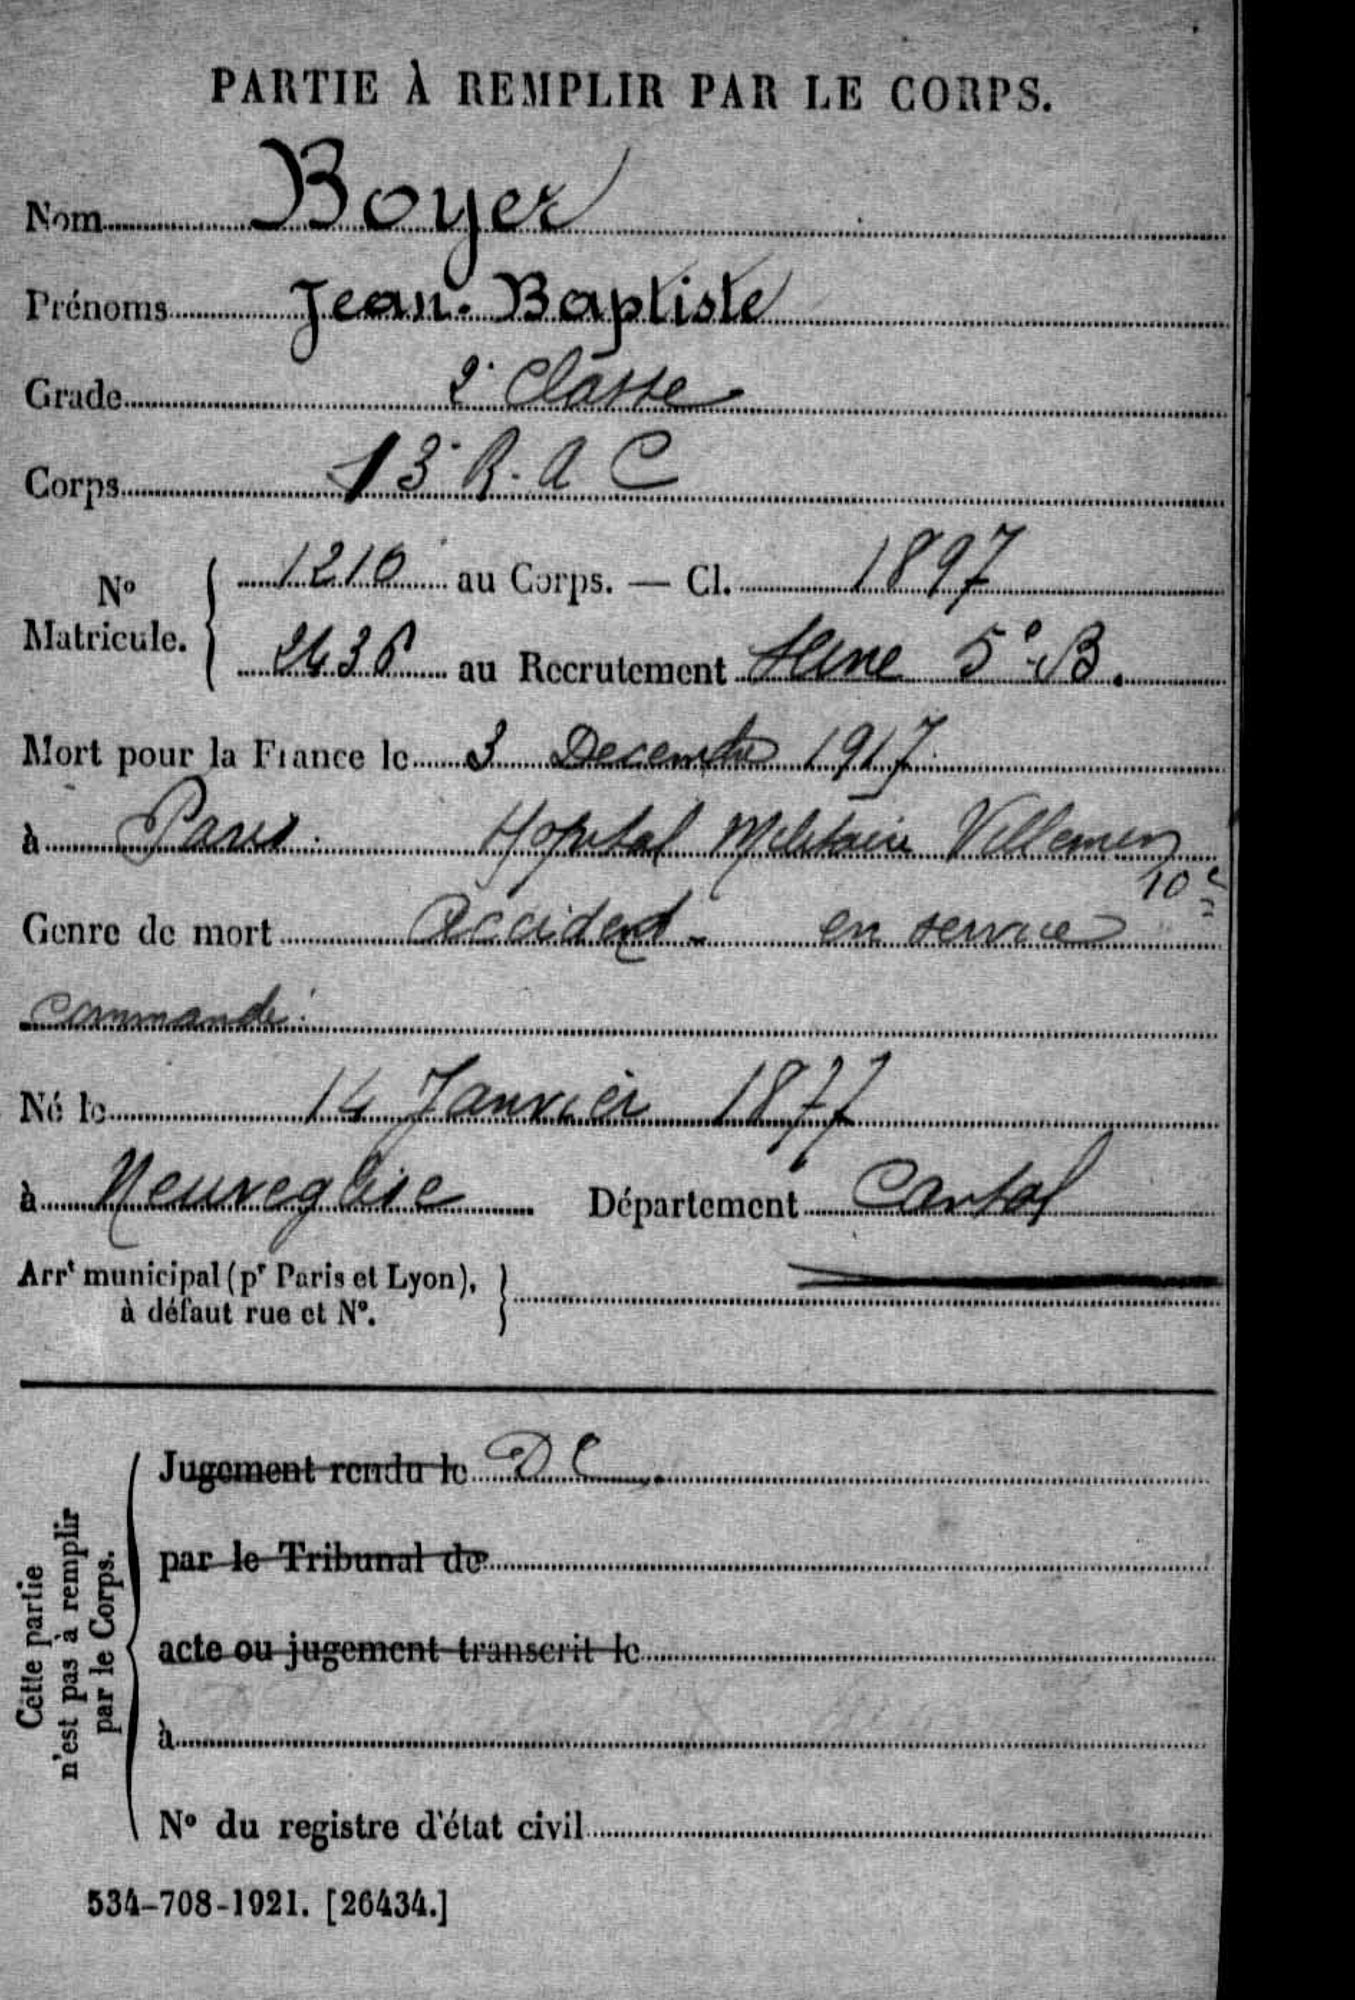 PARTIE À REMPLIR PAR LE CORPS.
Nom Boyer
Prénoms Jean-Baptiste
Grade 2e Classe
Corps 13e R. A C
No Matricule. 1210 au Corps. — Cl. 1897
2436 au Recrutement Seine 5e B.
Mort pour la France le 3 Decembre 1917
à Paris. Hopital Militaire Villemin
10e
Genre de mort Accident - en service
commandé.
Né le 14 Janvier 1877
à Neuveglise Département Cantal
Arrt municipal (pr Paris et Lyon),
à défaut rue et No.
Cette partie
n'est pas à remplir
par le Corps.
Jugement rendu le DC
par le Tribunal de
acte ou jugement transcrit le
à
No du registre d'état civil
534-708-1921. [26434.]